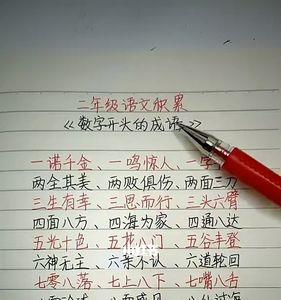 二年级语文积累
《数字开头的成语》
一诺千金、一鸣惊人、一字
两全其美、两败俱伤、两面三刀
三生有幸、三思而行、三头六臂
四面八方、四海为家、四通八达
五光十色、五花八门、五谷丰登
六神无主、六亲不认、六道轮回
七零八落、七上八下、七嘴八舌